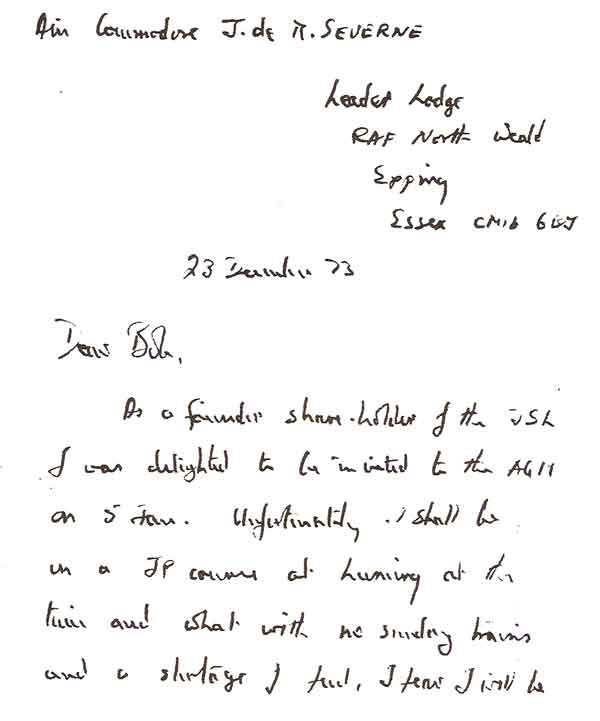 Air Commodore J. de M. SEVERNE
Leader Lodge
RAF North Weald
Epping
Essex CM16 6
23 December 73
Dear Bob,
As a founder share-holder of the
I was delighted to be invited to the AGM
on 5 Jan. Unfortunately I shall be
on a JP course at Leeming at the
time and what with no Sunday trains
and a shortage of fuel, I fear I will be